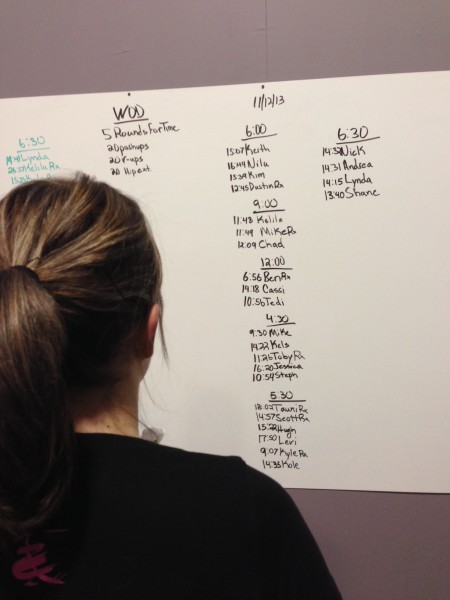 6:30
Lynda
WOD
5 Rounds For Time
20 pushups
20 v-ups
20 Hip ext
11/12/13
6:00
15:07 Keith
16:44 Nilu
15:39 Kim
12:45 Dustin Rx
9:00
11:48 Kelila
11:49 Mike Rx
12:09 Chad
12:00
6:56 Ben Rx
14:18 Cassi
10:56 Tedi
4:30
9:30 Mike
14:22 Kels
11:25 Toby Rx
16:20 Jessica
10:54 Steph
5:30
Tauri Rx
14:57 Scott Rx
Hugh
17:50 Levi
9:07 Kyle Rx
14:35 Kole
6:30
14:32 Nick
14:31 Andrea
14:15 Lynda
13:40 Shane